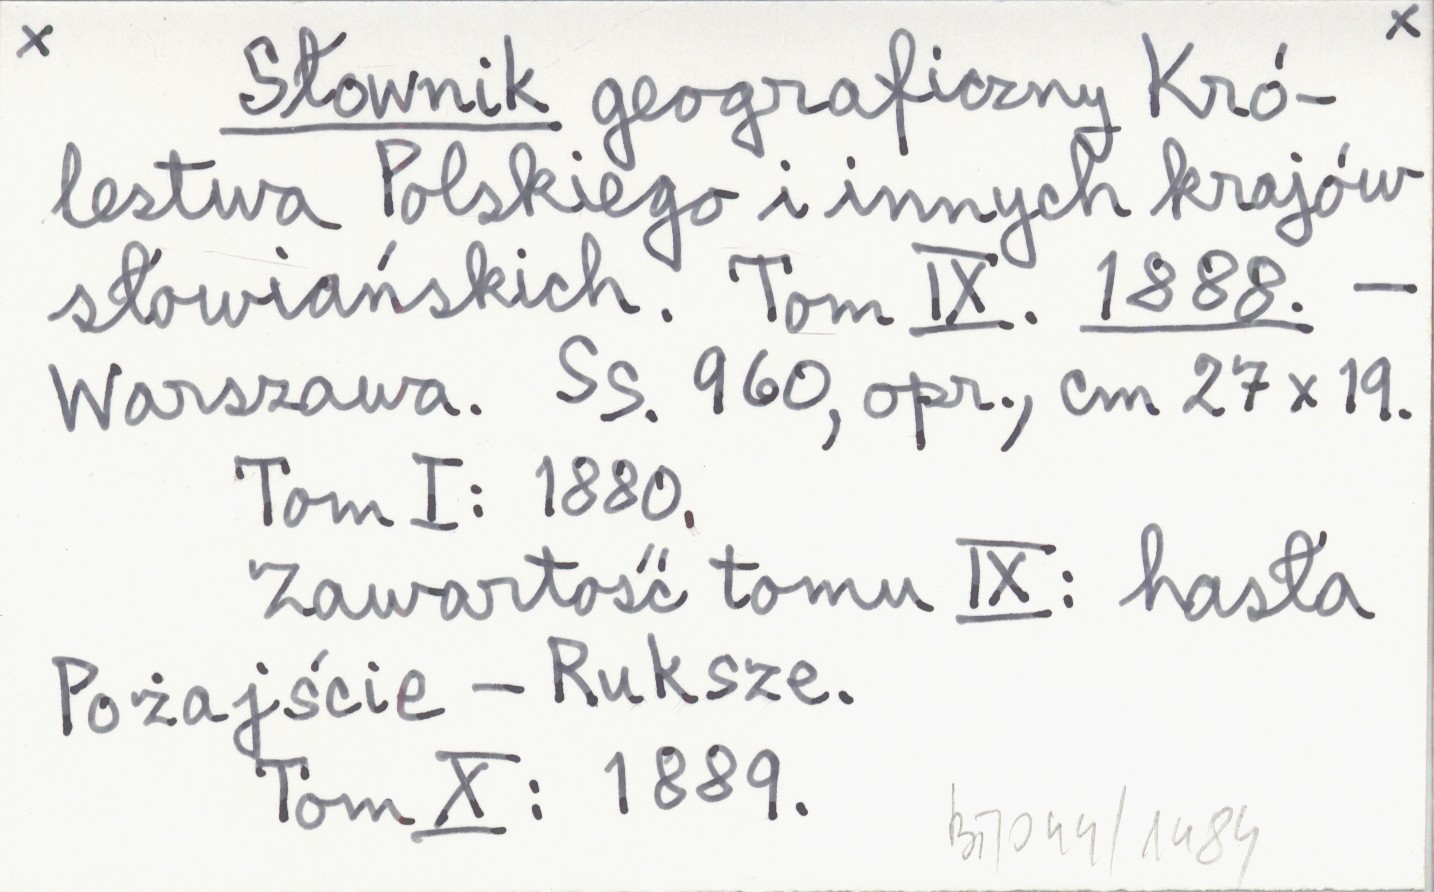 x x
Słownik geograficzny Kró-
lestwa Polskiego i innych krajów
słowiańskich. Tom IX. 1888. –
Warszawa. Ss. 960, opr., cm 27 x 19.
Tom I: 1880.
Zawartość tomu IX: hasła
Pożajście – Ruksze.
Tom X: 1889.